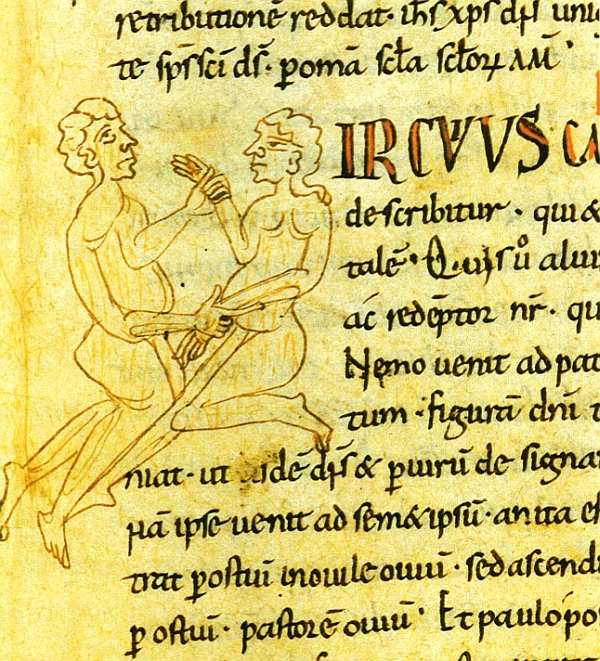 retributionē reddat. ihs xps dp̄s uni
te sp̄s sci ds̄. p omā scl̄a scl̄oꝝ AM̄.
IRCVVUS CA
describitur. qui &
talē. Quisů alur
ac̄ redēptor nr̄. qu
Nemo uenit ad pat
tum. figurā dn̄i
niat. ut dē dp̄s & puirū de signa
ipse uenit ad sem&ipsū. an ita es
trat p ostiū inouile ouiū. sed ascendi
p ostiū. pastorē ouiū. Et paulo pos